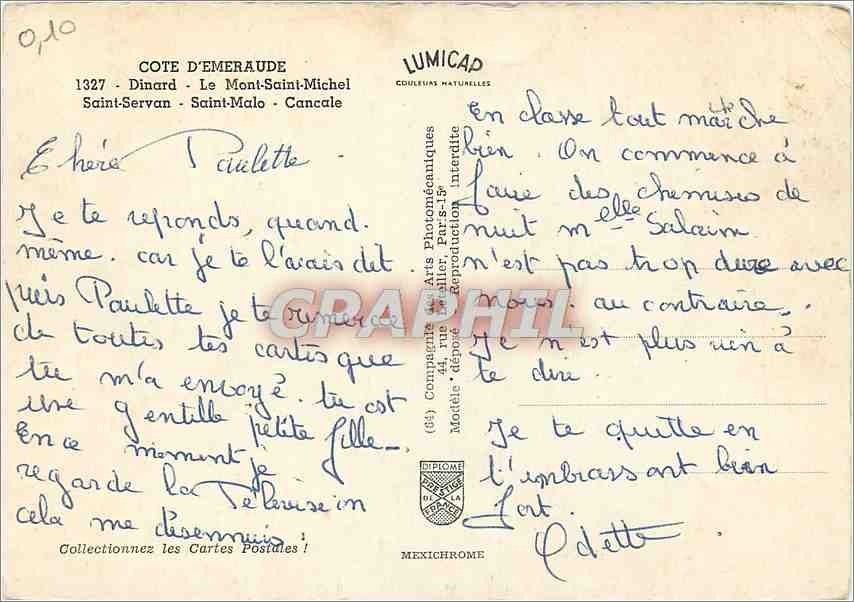 0,10
COTE D'EMERAUDE
1327 - Dinard - Le Mont-Saint-Michel
Saint-Servan - Saint-Malo - Cancale
Chère Paulette.
Je te reponds, quand.
même. car je te l'avais dit.
puis Paulette je te remercie
de toutes tes cartes que
tu m'a envoyé. tu est
une gentille petite fille.
En ce moment je
regarde la Télévision
cela me désennuis!
Collectionnez les Cartes Postales !
LUMICAP
COULEURS NATURELLES
(64) Compagnie des Arts Photomécaniques
44, rue Letellier, Paris-15e
Modèle déposé Reproduction Interdite
DIPLOME
PRESTIGE
DE LA
FRANCE
MEXICHROME
En classe tout marche
bien. On commence à
faire des chemises de
nuit Melle Salaün
n'est pas trop dure avec
nous. au contraire.
Je n'est plus rien à
te dire.
Je te quitte en
t'embrassant bien
fort.
Odette
CRAPHIL